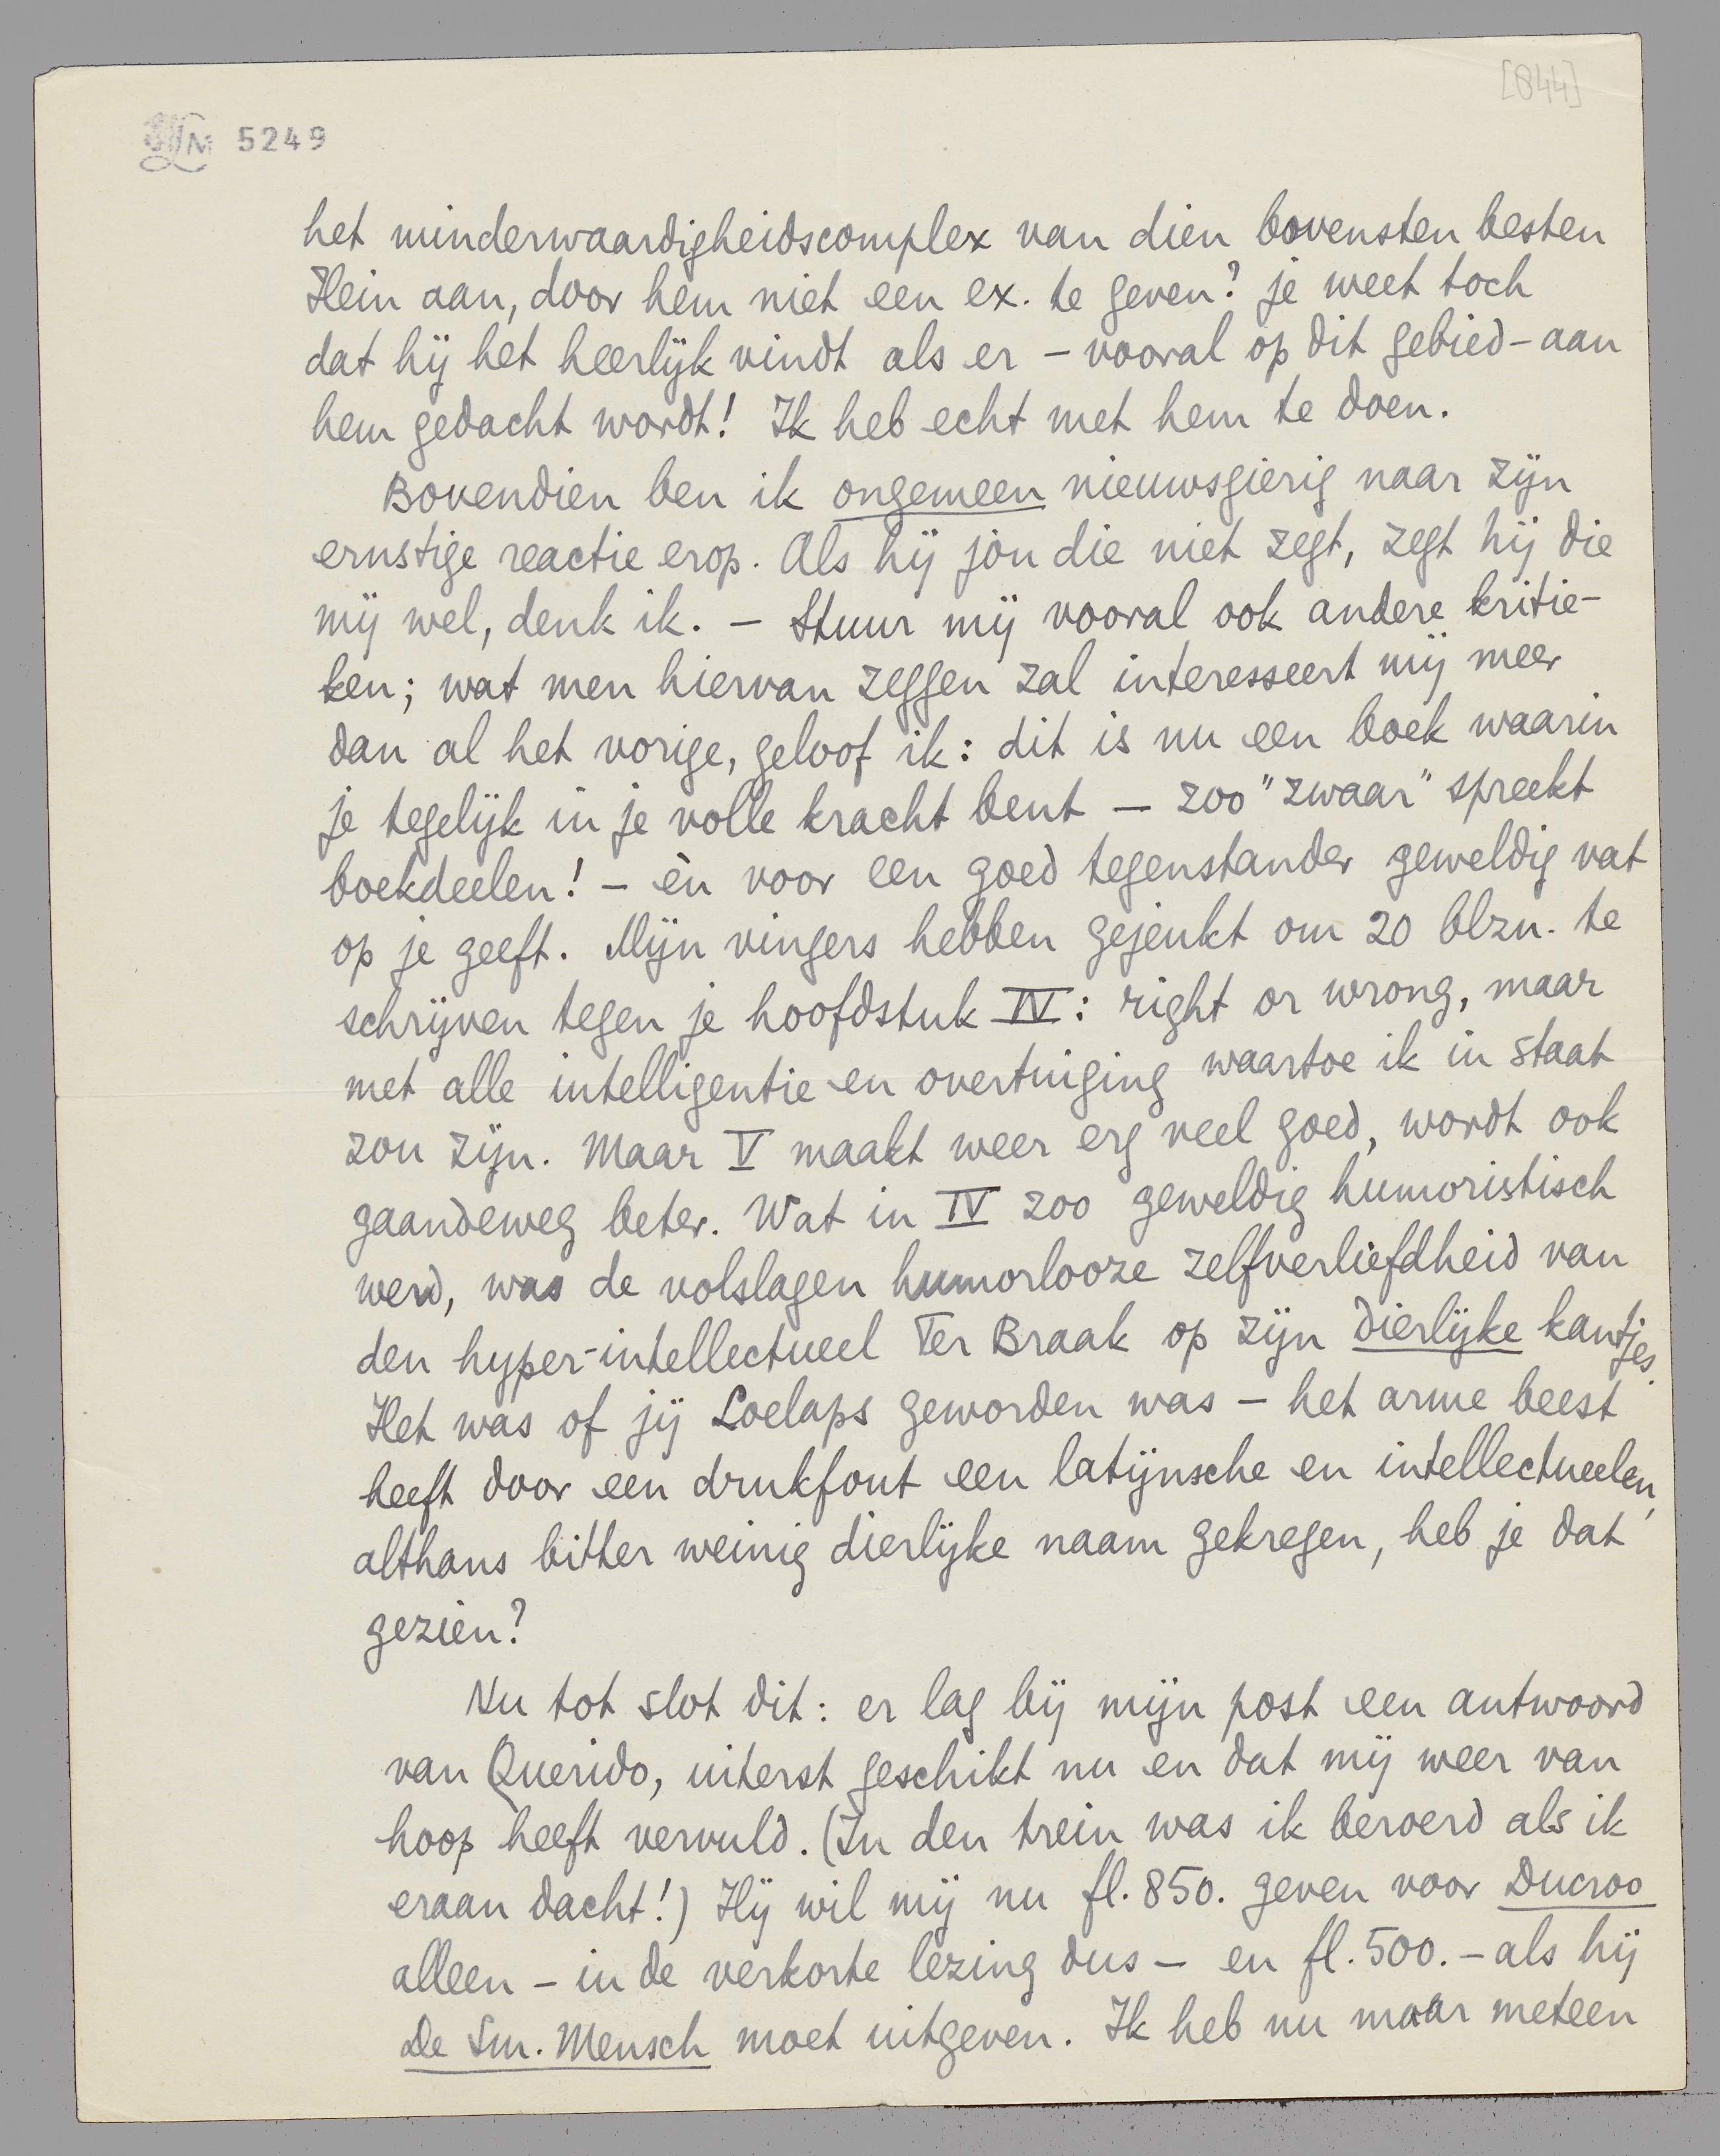 [844]
LM 5249
het minderwaardigheidscomplex van dien bovensten besten
Hein aan, door hem niet een ex. te geven? je weet toch
dat hij het heerlijk vindt als er – vooral op dit gebied – aan
hem gedacht wordt! Ik heb echt met hem te doen.
Bovendien ben ik ongemeen nieuwsgierig naar zijn
ernstige reactie erop. Als hij jòu die niet zegt, zegt hij die
mij wel, denk ik. – Stuur mij vooral ook andere kritie-
ken; wat men hiervan zeggen zal interesseert mij meer
dan al het vorige, geloof ik: dit is nu een boek waarin
je tegelijk in je volle kracht bent – zoo "zwaar" spreekt
boekdeelen! – èn voor een goed tegenstander geweldig vat
op je geeft. Mijn vingers hebben gejeukt om 20 blzn. te
schrijven tegen je hoofdstuk IV: right or wrong, maar
met alle intelligentie en overtuiging waartoe ik in staat
zou zijn. Maar V maakt weer erg veel goed, wordt ook
gaandeweg beter. Wat in IV zoo geweldig humoristisch
werd, was de volslagen humorlooze zelfverliefdheid van
den hyper-intellectueel Ter Braak op zijn dierlijke kantjes.
Het was of jij Loelaps geworden was – het arme beest
heeft door een drukfout een latijnsche en intellectueelen,
althans bitter weinig dierlijke naam gekregen, heb je dat
gezien?
Nu tot slot dit: er lag bij mijn post een antwoord
van Querido, uiterst geschikt nu en dat mij weer van
hoop heeft vervuld. (In den trein was ik beroerd als ik
eraan dacht!) Hij wil mij nu fl. 850. geven voor Ducroo
alleen – in de verkorte lezing dus – en fl. 500. – als hij
De Sm. Mensch moet uitgeven. Ik heb nu maar meteen